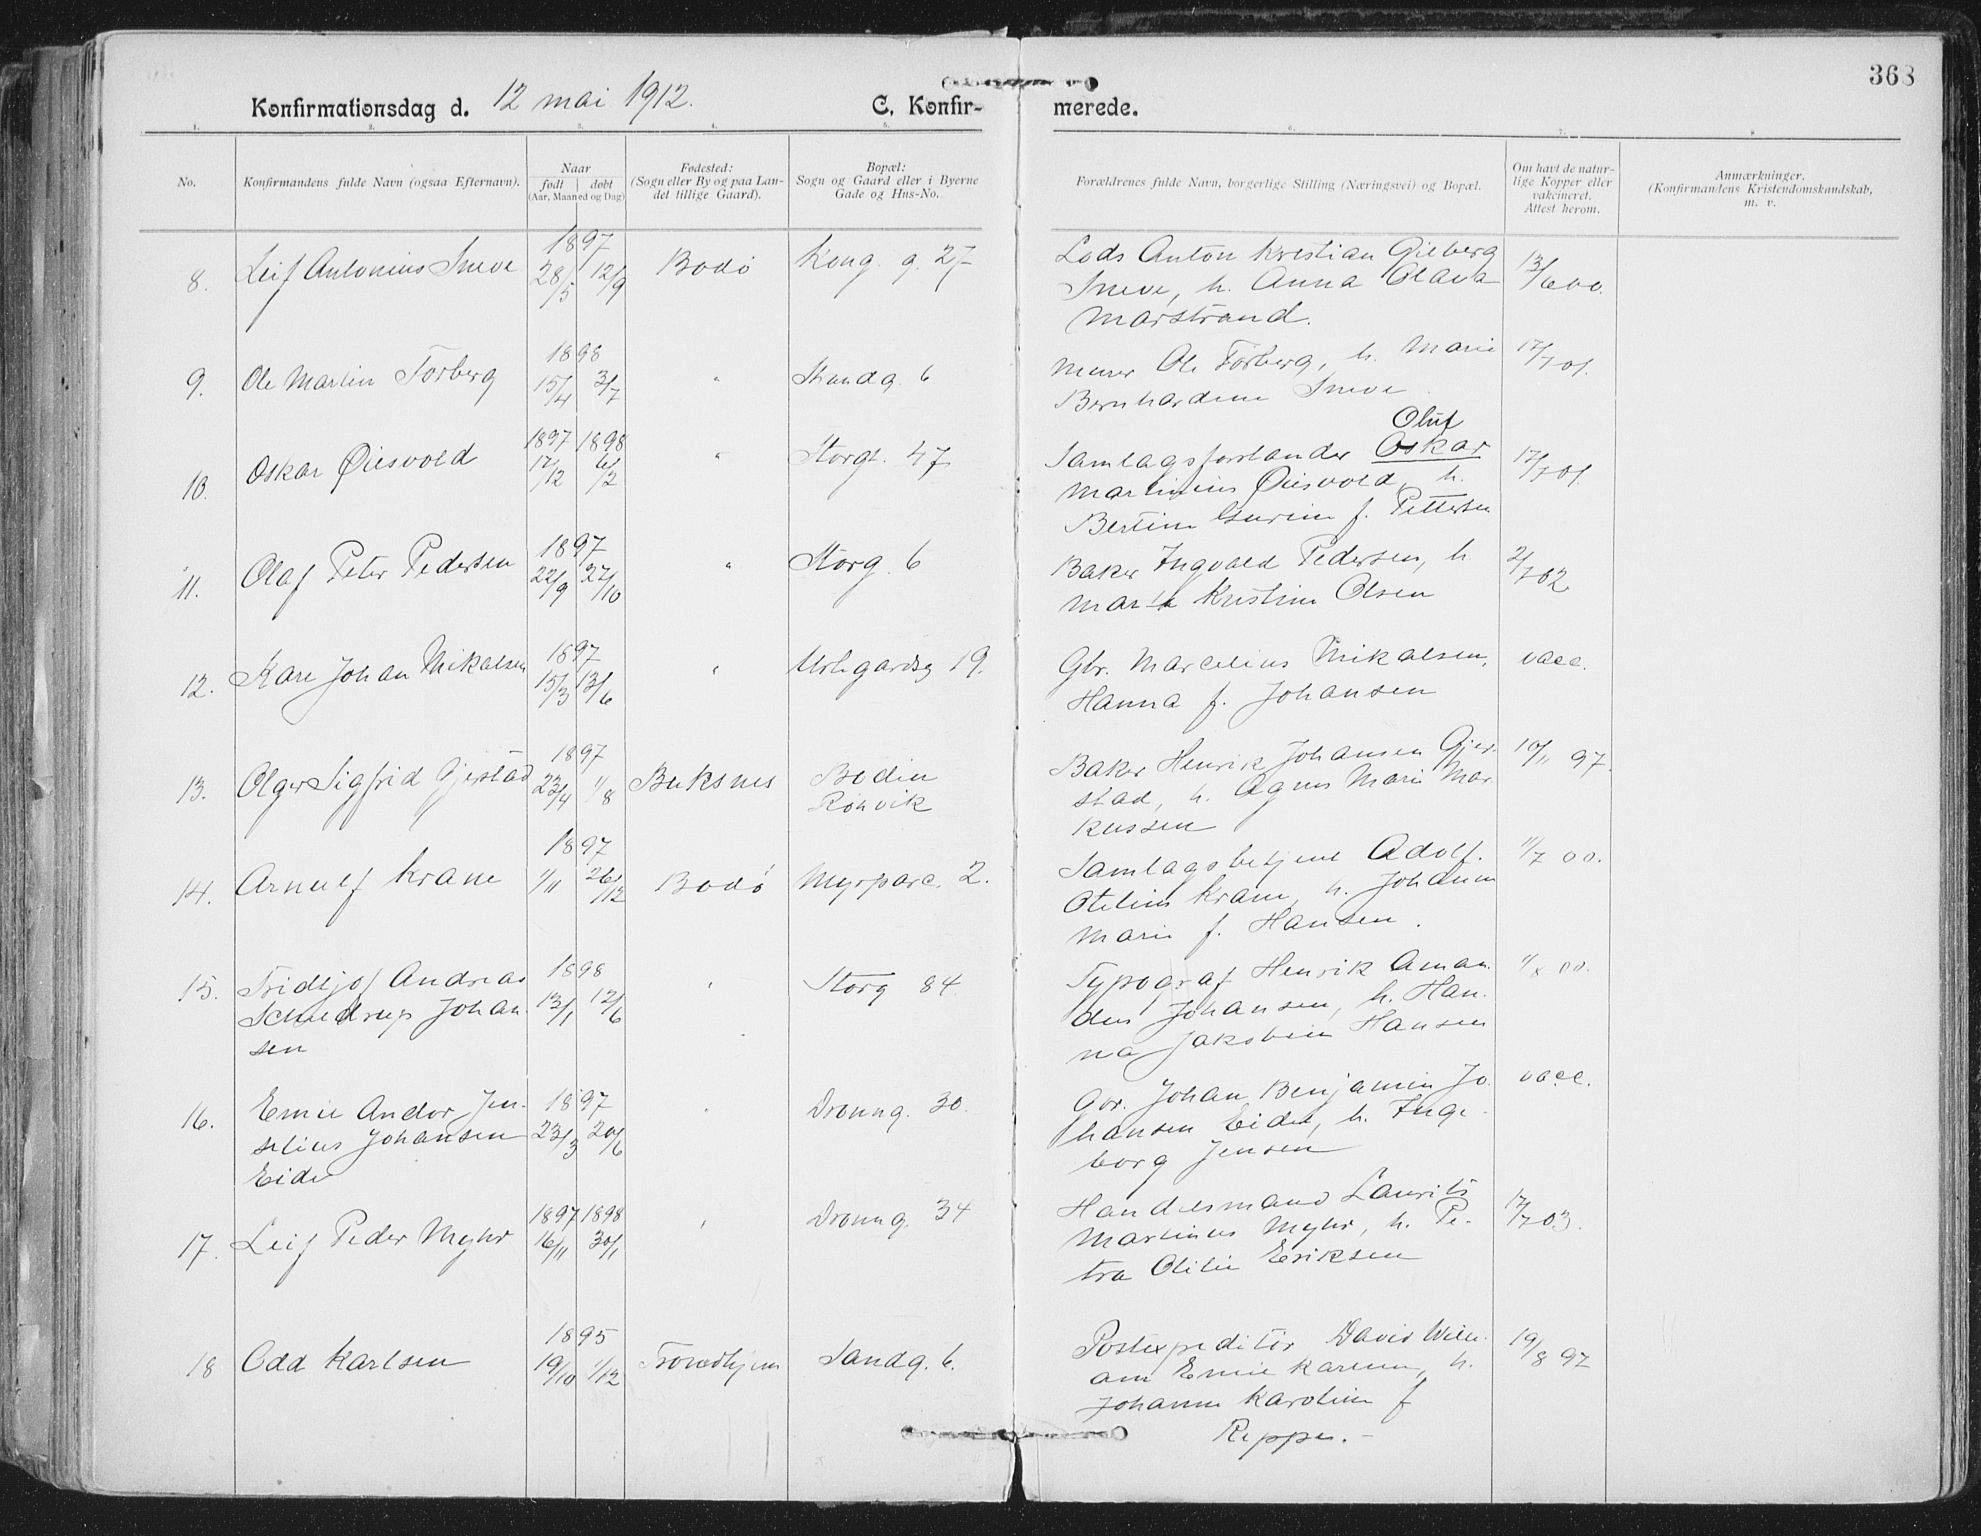 368
Konfirmationsdag d. 12 mai 1912. C. Konfir- merede.
1. 2. 3. 4. 5. 6. 7. 8.
No.
Konfirmandens fulde Navn (ogsaa Efternavn).
Naar
født døbt
(Aar, Maaned og Dag)
Fødested:
(Sogn eller By og paa Lan-
det tillige Gaard).
Bopæl:
Sogn og Gaard eller i Byerne
Gade og Hus-No.
Forældrenes fulde Navn, borgerlige Stilling (Næringsvei) og Bopæl.
Om havt de natur-
lige Kopper eller
vakcineret.
Attest herom.
Anmærkninger.
(Konfirmandens Kristendomskundskab,
m. v.
8. Leif Antonius Sneve 1897 28/5 12/9 Bodø Kong. g. 27
Lods Anton Kristian Gieberg
Sneve, h. Anna Olava
Marstrand.
13/6 00.
9. Ole Martin Torberg 1898 15/4 3/7 " Strandg. 6
Murer Ole Torberg, h. Marie
Bernhardine Sneve
17/7 01.
10. Oskar Øiesvold 1897 1898 12/12 6/2 " Storgt. 47
Oluf
Samlagsforstander Oskar
Martinius Øiesvold, h.
Bertine Gurine f. Pettersen
17/7 01.
11. Olaf Peter Pedersen 1897 22/9 27/10 " Storg. 6
Baker Ingvald Pedersen, h.
Maria Kristine Olsen
2/7 02.
12. Kare Johan Mikalsen 1897 15/3 13/6 " 19.
Gbr. Marcelius Mikalsen,
Hanna f. Johansen
vacc.
13. Olger Sigfrid Gjerstad 1897 23/4 1/8 Buksnes Bodin
Rønvik
Baker Henrik Johansen Gjer-
stad, h. Agnes Marie Mar
kussen
10/11 97.
14. Arnulf Krane 1897 1/11 26/12 Bodø Myrparc. 2.
Samlagsbetjent Adolf.
Otelius Krane, h. Johanne
Marie f. Hansen.
11/7 00.
15. Fridtjof Andreas
Schieldrup Johan
sen
1898 13/1 12/6 " Storg 84.
Typograf Henrik Aman
dus Johansen, h. Han.
na Jakobine Hansen
1/8 00.
16. Emil Andor Jen-
selius Johansen
Eide
1897 23/3 20/6 " Dronng. 30.
Gbr. Johan Benjamin Jo
hansen Eide, h. Inge
borg Jensen
vacc.
17. Leif Peder Myhr 1897 1898 16/11 30/1 " Dronng. 34
Handelsmand Laurits
Martinus Myhr, h. Pe-
tra Otilie Eriksen
17/7 03.
18 Odd Karlsen 1895 19/10 1/12 Trondhjem Sandg. 6.
Postexpeditør David Willi
am Emil Karlsen, h.
Johanne Karoline f
Reppe.-
19/8 97